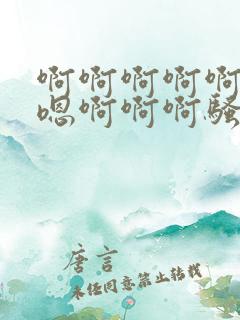 啊啊啊啊啊
嗯啊啊啊骚
唐言
未经同意禁止转载